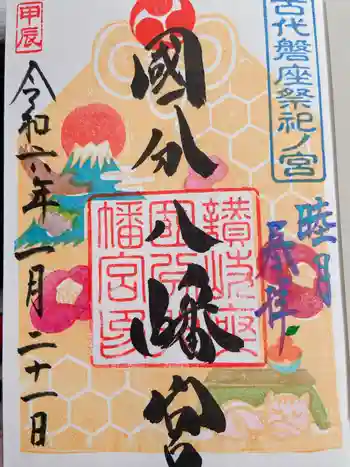 古代磐座祭祀ノ宮
睦月
奉拝
國分八幡宮
讃岐國
国分八
幡宮印
甲辰
令和六年一月二十一日